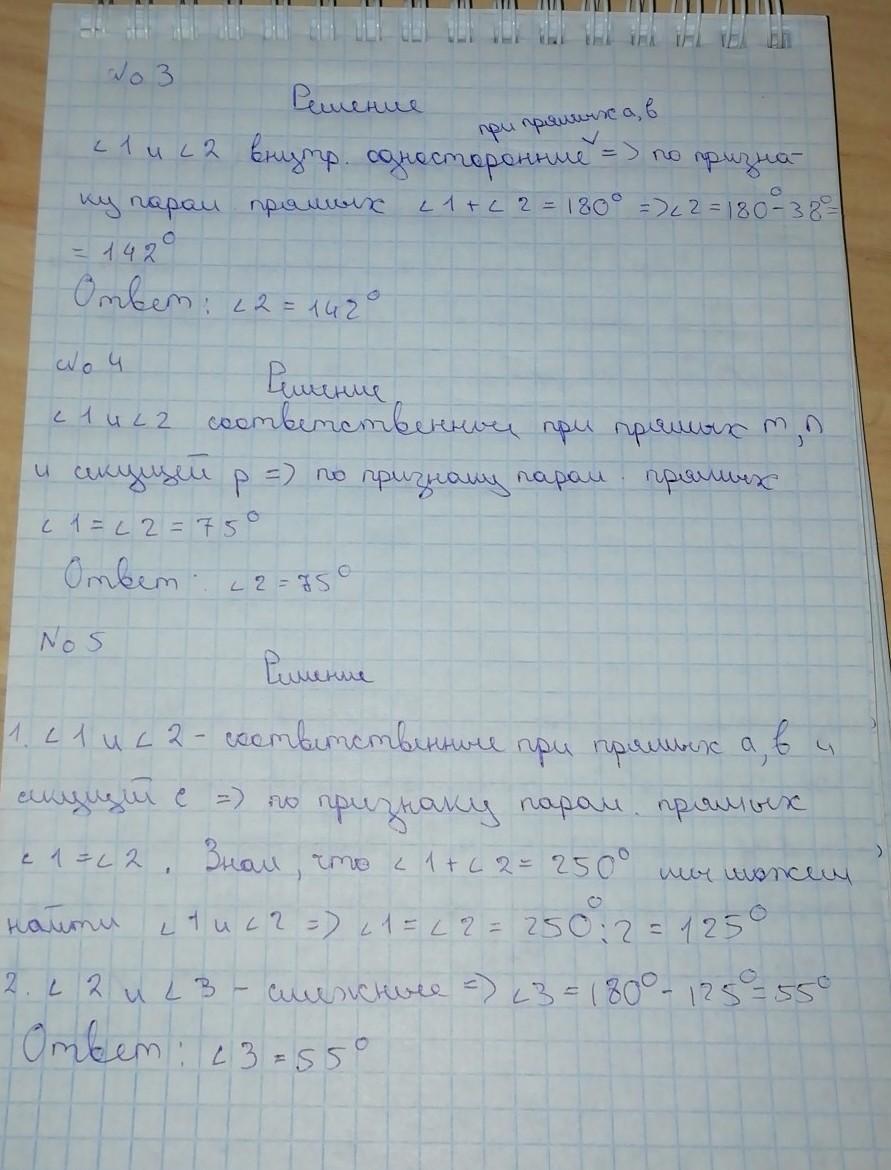 № 3
Решение
при прямых а, в
∠1 и ∠2 внутр. односторонние => по призна-
ку парал прямых ∠1 + ∠2 = 180° => ∠2 = 180° - 38° =
= 142°
Ответ: ∠2 = 142°
№ 4
Решение
∠1 и ∠2 соответственные при прямых m, n
и секущей p => по признаку парал. прямых
∠1 = ∠2 = 75°
Ответ: ∠2 = 75°
№ 5
Решение
1. ∠1 и ∠2 - соответственные при прямых а, в и
секущей с => по признаку парал. прямых
∠1 = ∠2. Зная, что ∠1 + ∠2 = 250° мы можем
найти ∠1 и ∠2 => ∠1 = ∠2 = 250° : 2 = 125°
2. ∠2 и ∠3 - смежные => ∠3 = 180° - 125° = 55°
Ответ: ∠3 = 55°